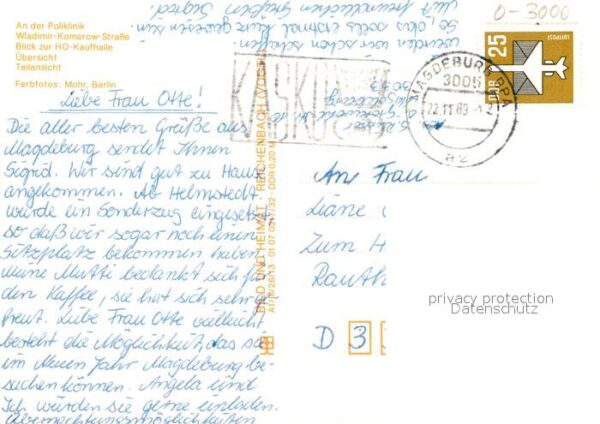 An der Poliklinik
Wladimir-Komarow-Straße
Blick zur HO-Kaufhalle
Übersicht
Teilansicht
Farbfotos: Mohr, Berlin
Liebe Frau Otte!
Die aller besten Grüße aus
Magdeburg sendet Ihnen
Sigrid. Wir sind gut zu Haus
angekommen. Ab Helmstedt
wurde ein Sonderzug eingesetzt,
so daß wir sogar noch einen
Sitzplatz bekommen haben
meine Mutti bedankt sich für
den Kaffee, sie hat sich sehr ge
freut. Liebe Frau Otte vielleicht
besteht die Möglichkeit, das sie
im Neuen Jahr Magdeburg be-
suchen können. Angela und
Ich würden sie gerne einladen.
Übernachtungsmöglichkeiten
werden wir schon schaffen.
So, das solls erstmal kurz gewesen sein.
Mit freundlichen Grüßen Sigrid.
BILD UND HEIMAT · REICHENBACH
DDR 0,20 M
0-3000
DDR
25
LUFTPOST
MAGDEBURG BPA
3005
22.11.89
az
An Frau
Liane
Zum H
Rauth
D 3 3
privacy protection
Datenschutz